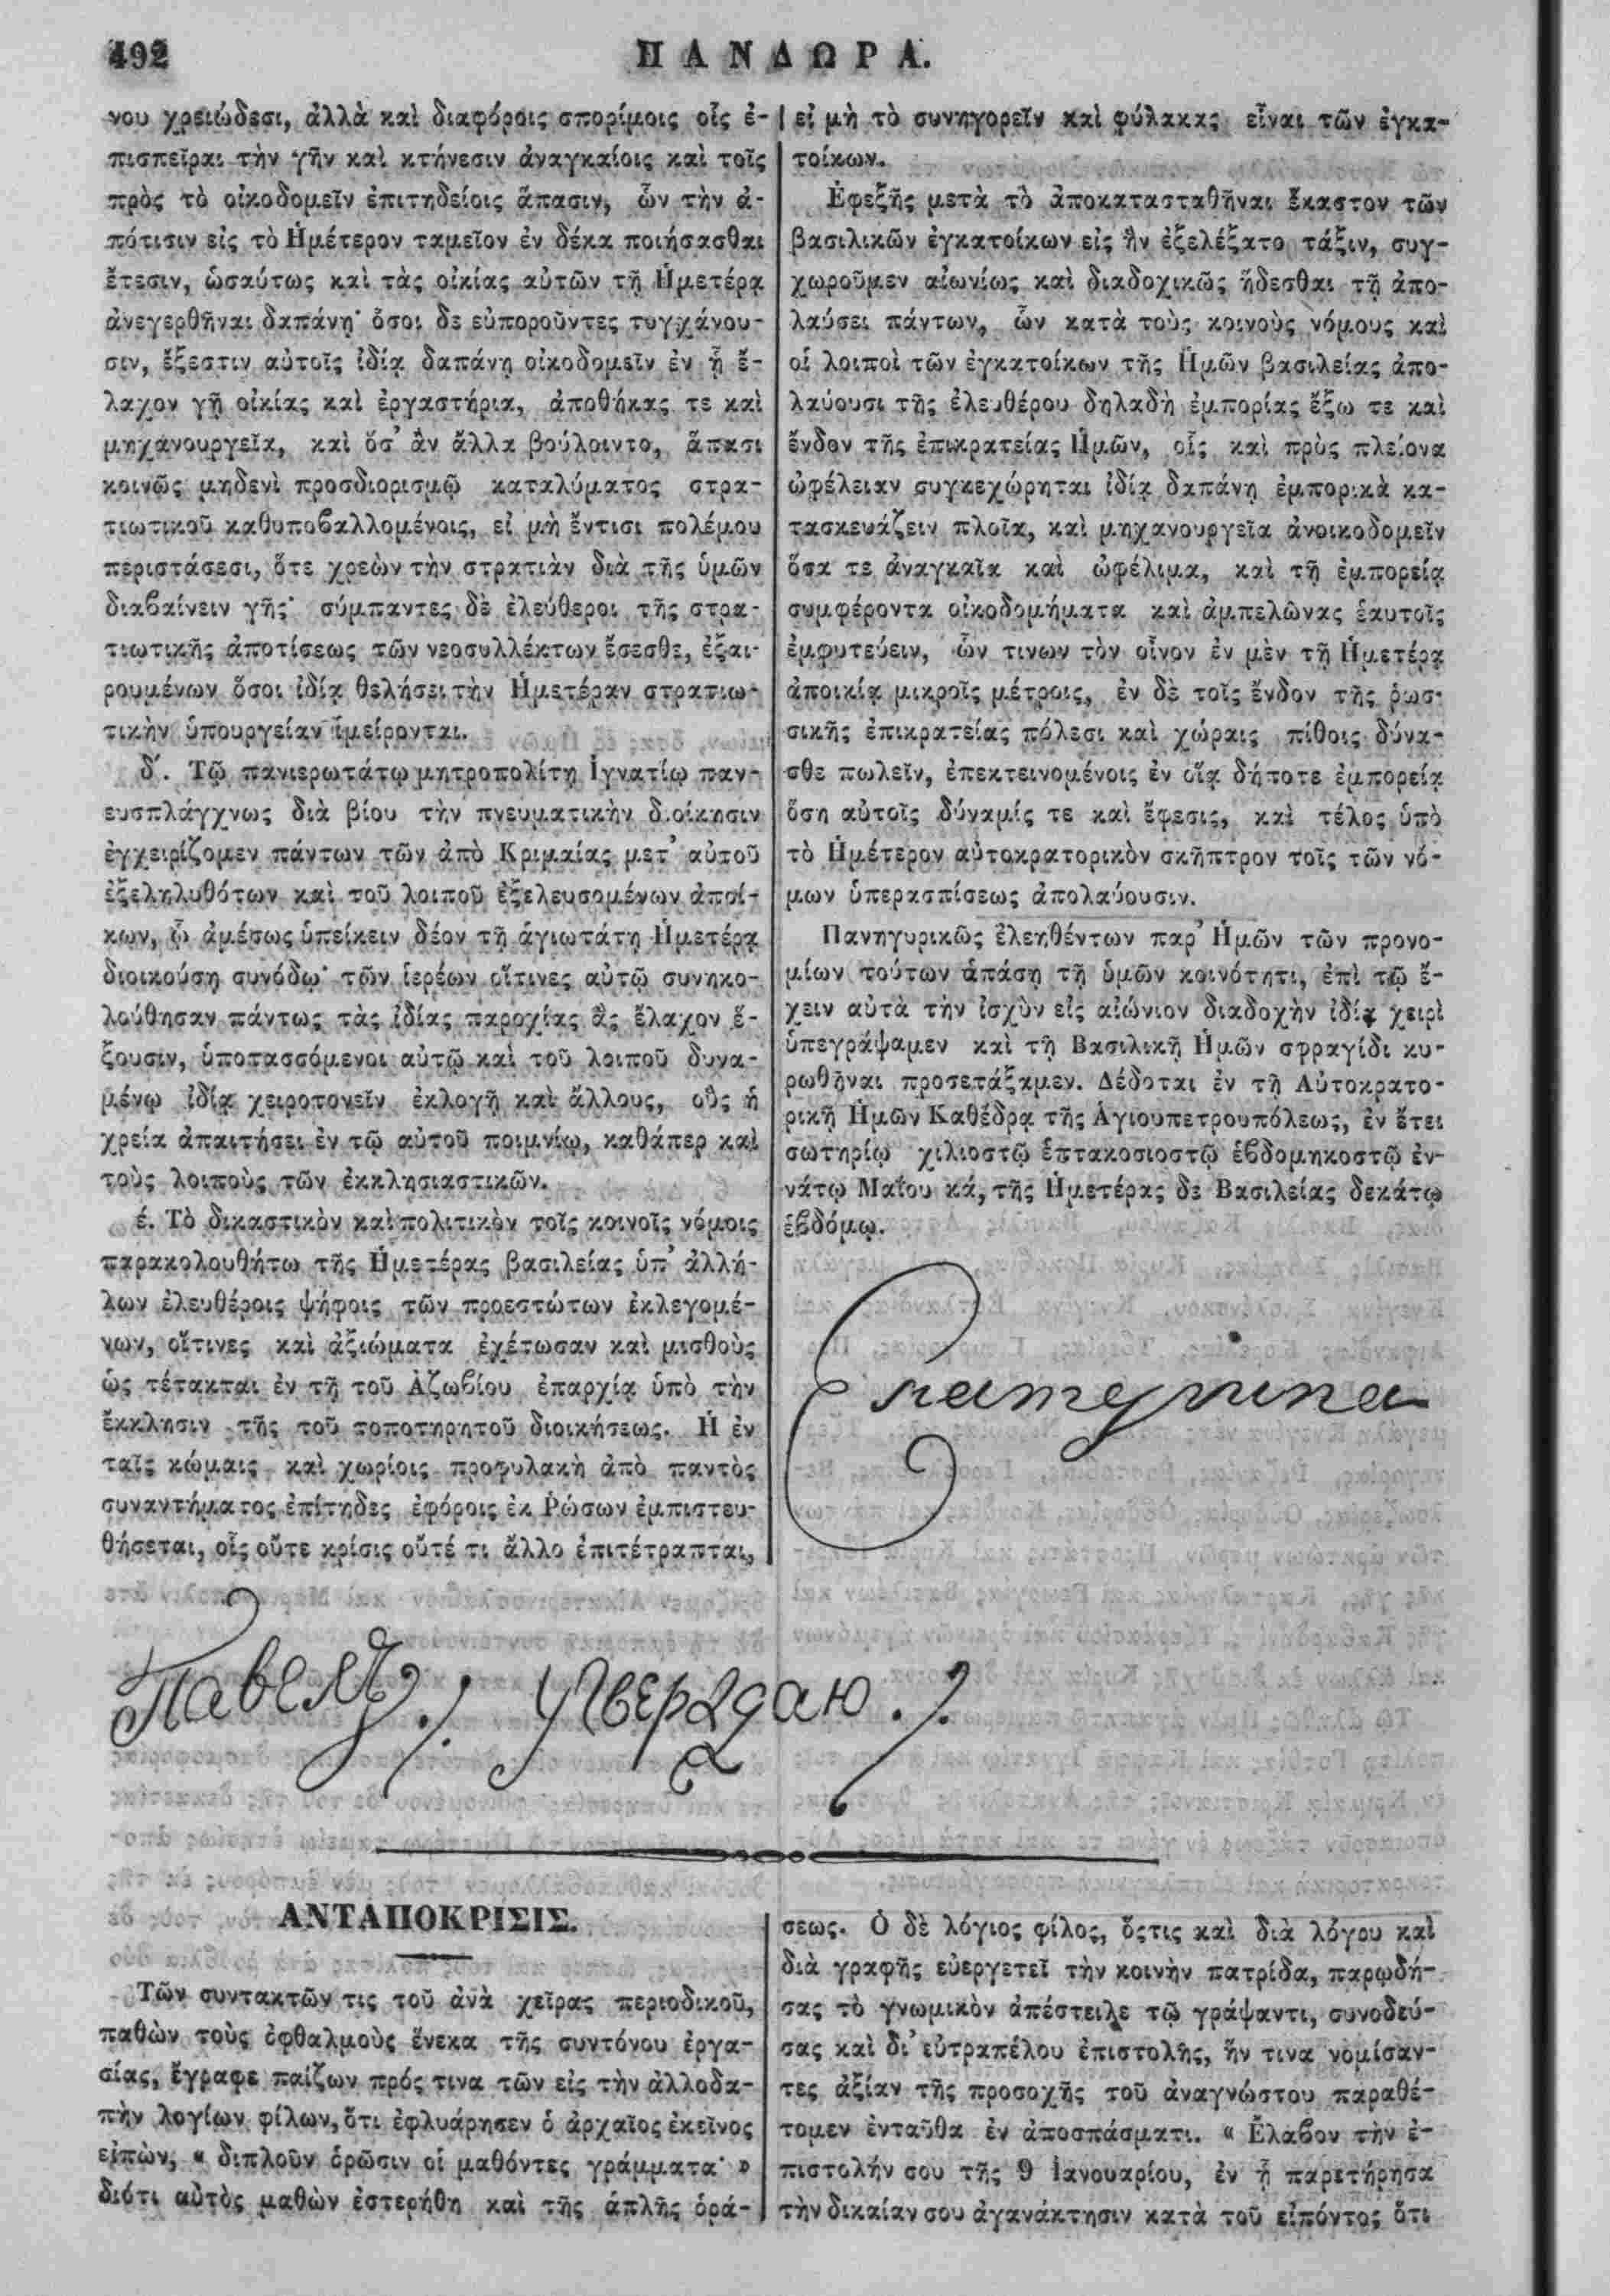 492
ΠΑΝΔΩΡΑ.
νου χρειώδεσι, ἀλλὰ καὶ διαφόροις σπορίμοις οἷς ἐ-
πισπεῖραι τὴν γῆν καὶ κτήνεσιν ἀναγκαίοις καὶ τοῖς
πρὸς τὸ οἰκοδομεῖν ἐπιτηδείοις ἅπασιν, ὧν τὴν ἀ-
πότισιν εἰς τὸ Ἡμέτερον ταμεῖον ἐν δέκα ποιήσασθαι
ἔτεσιν, ὡσαύτως καὶ τὰς οἰκίας αὐτῶν τῇ Ἡμετέρᾳ
ἀνεγερθῆναι δαπάνῃ· ὅσοι δε εὐποροῦντες τυγχάνου-
σιν, ἔξεστιν αὐτοῖς ἰδίᾳ δαπάνῃ οἰκοδομεῖν ἐν ᾗ ἔ-
λαχον γῇ οἰκίας καὶ ἐργαστήρια, ἀποθήκας τε καὶ
μηχανουργεῖα, καὶ ὅσ' ἂν ἄλλα βούλοιντο, ἅπασι
κοινῶς μηδενὶ προσδιορισμῷ καταλύματος στρα-
τιωτικοῦ καθυποβαλλομένοις, εἰ μὴ ἔντισι πολέμου
περιστάσεσι, ὅτε χρεὼν τὴν στρατιὰν διὰ τῆς ὑμῶν
διαβαίνειν γῆς· σύμπαντες δὲ ἐλεύθεροι τῆς στρα-
τιωτικῆς ἀποτίσεως τῶν νεοσυλλέκτων ἔσεσθε, ἐξαι-
ρουμένων ὅσοι ἰδίᾳ θελήσει τὴν Ἡμετέραν στρατιω-
τικὴν ὑπουργείαν ἱμείρονται.
δ΄. Τῷ πανιερωτάτῳ μητροπολίτῃ Ἰγνατίῳ παν-
ευσπλάγχνως διὰ βίου τὴν πνευματικὴν διοίκησιν
ἐγχειρίζομεν πάντων τῶν ἀπὸ Κριμαίας μετ' αὐτοῦ
ἐξεληλυθότων καὶ τοῦ λοιποῦ ἐξελευσομένων ἀποί-
κων, ᾧ ἀμέσως ὑπείκειν δέον τῇ ἁγιωτάτῃ Ἡμετέρᾳ
διοικούσῃ συνόδῳ· τῶν ἱερέων οἵτινες αὐτῷ συνηκο-
λούθησαν πάντως τὰς ἰδίας παροχίας ἃς ἔλαχον ἕ-
ξουσιν, ὑποτασσόμενοι αὐτῷ καὶ τοῦ λοιποῦ δυνα-
μένῳ ἰδίᾳ χειροτονεῖν ἐκλογῇ καὶ ἄλλους, οὓς ἡ
χρεία ἀπαιτήσει ἐν τῷ αὐτοῦ ποιμνίῳ, καθάπερ καὶ
τοὺς λοιποὺς τῶν ἐκκλησιαστικῶν.
έ. Τὸ δικαστικὸν καὶ πολιτικὸν τοῖς κοινοῖς νόμοις
παρακολουθήτω τῆς Ἡμετέρας βασιλείας ὑπ' ἀλλή-
λων ἐλευθέροις ψήφοις τῶν προεστώτων ἐκλεγομέ-
νων, οἵτινες καὶ ἀξιώματα ἐχέτωσαν καὶ μισθοὺς
ὡς τέτακται ἐν τῇ τοῦ Ἀζωβίου ἐπαρχίᾳ ὑπὸ τὴν
ἔκκλησιν τῆς τοῦ τοποτηρητοῦ διοικήσεως. Ἡ ἐν
ταῖς κώμαις καὶ χωρίοις προφυλακὴ ἀπὸ παντὸς
συναντήματος ἐπίτηδες ἐφόροις ἐκ Ῥώσων ἐμπιστευ-
θήσεται, οἷς οὔτε κρίσις οὔτέ τι ἄλλο ἐπιτέτραπται,
εἰ μὴ τὸ συνηγορεῖν καὶ φύλακας εἶναι τῶν ἐγκα-
τοίκων.
Ἐφεξῆς μετὰ τὸ ἀποκατασταθῆναι ἕκαστον τῶν
βασιλικῶν ἐγκατοίκων εἰς ἣν ἐξελέξατο τάξιν, συγ-
χωροῦμεν αἰωνίως καὶ διαδοχικῶς ἥδεσθαι τῇ ἀπο-
λαύσει πάντων, ὧν κατὰ τοὺς κοινοὺς νόμους καὶ
οἱ λοιποὶ τῶν ἐγκατοίκων τῆς Ἡμῶν βασιλείας ἀπο-
λαύουσι τῆς ἐλευθέρου δηλαδὴ ἐμπορίας ἔξω τε καὶ
ἔνδον τῆς ἐπικρατείας Ἡμῶν, οἷς καὶ πρὸς πλείονα
ὠφέλειαν συγκεχώρηται ἰδίᾳ δαπάνῃ ἐμπορικὰ κα-
τασκευάζειν πλοῖα, καὶ μηχανουργεῖα ἀνοικοδομεῖν
ὅσα τε ἀναγκαῖα καὶ ὠφέλιμα, καὶ τῇ ἐμπορείᾳ
συμφέροντα οἰκοδομήματα καὶ ἀμπελῶνας ἑαυτοῖς
ἐμφυτεύειν, ὧν τινων τὸν οἶνον ἐν μὲν τῇ Ἡμετέρᾳ
ἀποικίᾳ μικροῖς μέτροις, ἐν δὲ τοῖς ἔνδον τῆς ῥωσ-
σικῆς ἐπικρατείας πόλεσι καὶ χώραις πίθοις δύνα-
σθε πωλεῖν, ἐπεκτεινομένοις ἐν οἵᾳ δήποτε ἐμπορείᾳ
ὅση αὐτοῖς δύναμίς τε καὶ ἔφεσις, καὶ τέλος ὑπὸ
τὸ Ἡμέτερον αὐτοκρατορικὸν σκῆπτρον τοῖς τῶν νό-
μων ὑπερασπίσεως ἀπολαύουσιν.
Πανηγυρικῶς ἐλεηθέντων παρ' Ἡμῶν τῶν προνο-
μίων τούτων ἁπάσῃ τῇ ὑμῶν κοινότητι, ἐπὶ τῷ ἔ-
χειν αὐτὰ τὴν ἰσχὺν εἰς αἰώνιον διαδοχὴν ἰδίᾳ χειρὶ
ὑπεγράψαμεν καὶ τῇ Βασιλικῇ Ἡμῶν σφραγίδι κυ-
ρωθῆναι προσετάξαμεν. Δέδοται ἐν τῇ Αὐτοκρατο-
ρικῇ Ἡμῶν Καθέδρᾳ τῆς Ἁγιουπετρουπόλεως, ἐν ἔτει
σωτηρίῳ χιλιοστῷ ἑπτακοσιοστῷ ἑβδομηκοστῷ ἐν-
νάτῳ Μαΐου κά, τῆς Ἡμετέρας δε Βασιλείας δεκάτῳ
ἑβδόμῳ.
Екатерина
Павелъ. утверждаю.
ΑΝΤΑΠΟΚΡΙΣΙΣ.
Τῶν συντακτῶν τις τοῦ ἀνὰ χεῖρας περιοδικοῦ,
παθὼν τοὺς ὀφθαλμοὺς ἕνεκα τῆς συντόνου ἐργα-
σίας, ἔγραφε παίζων πρός τινα τῶν εἰς τὴν ἀλλοδα-
πὴν λογίων φίλων, ὅτι ἐφλυάρησεν ὁ ἀρχαῖος ἐκεῖνος
εἰπὼν, « διπλοῦν ὁρῶσιν οἱ μαθόντες γράμματα· »
διότι αὐτὸς μαθὼν ἐστερήθη καὶ τῆς ἁπλῆς ὁρά-
σεως. Ὁ δὲ λόγιος φίλος, ὅςτις καὶ διὰ λόγου καὶ
διὰ γραφῆς εὐεργετεῖ τὴν κοινὴν πατρίδα, παρῳδή-
σας τὸ γνωμικὸν ἀπέστειλε τῷ γράψαντι, συνοδεύ-
σας καὶ δι' εὐτραπέλου ἐπιστολῆς, ἥν τινα νομίσαν-
τες ἀξίαν τῆς προσοχῆς τοῦ ἀναγνώστου παραθέ-
τομεν ἐνταῦθα ἐν ἀποσπάσματι. « Ἔλαβον τὴν ἐ-
πιστολήν σου τῆς 9 Ἰανουαρίου, ἐν ᾗ παρετήρησα
τὴν δικαίαν σου ἀγανάκτησιν κατὰ τοῦ εἰπόντος ὅτι